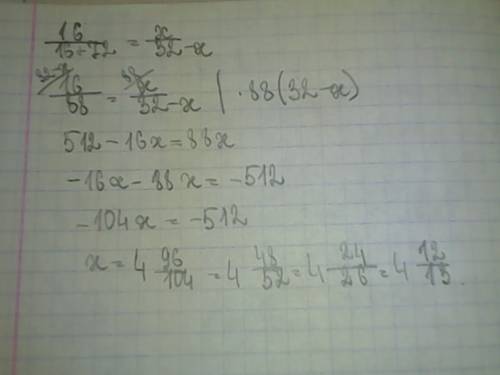 16/(16+72) = x/(32-x)
16/88 = x/(32-x) | ·88(32-x)
512-16x=88x
-16x-88x=-512
-104x=-512
x=4 96/104=4 48/52=4 24/26=4 12/13.